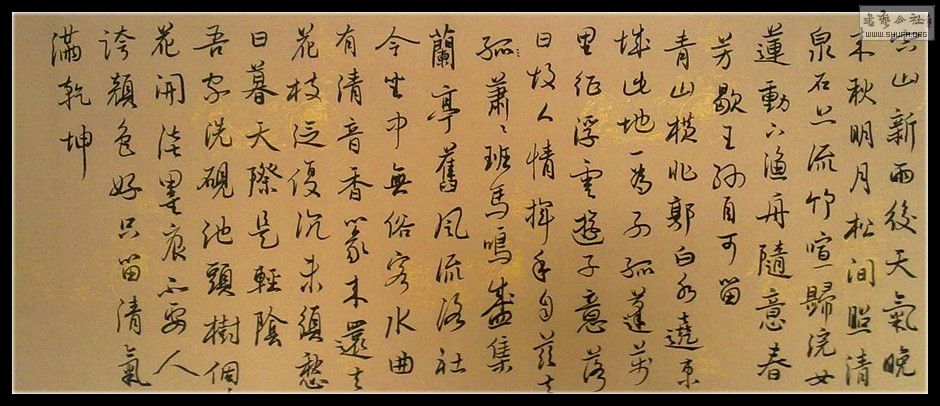 空山新雨後天氣晚
来秋明月松间照清
泉石上流竹喧歸浣女
蓮動下漁舟隨意春
芳歇王孙自可留
青山横北郭白水遶東
城此地一為子孤蓬万
里征浮雲遊子意落
日故人情挥手自兹去
孤萧〻班馬鳴盛集
蘭亭舊風流洛社
今坐中無俗客水曲
有清音香篆来還去
花枝泛復沉未須愁
日暮天際是輕陰
吾家洗硯池頭樹個〻
花開淡墨痕不要人
誇顏色好只留清氣
滿乾坤
书艺公社
WWW.SHUFA.ORG